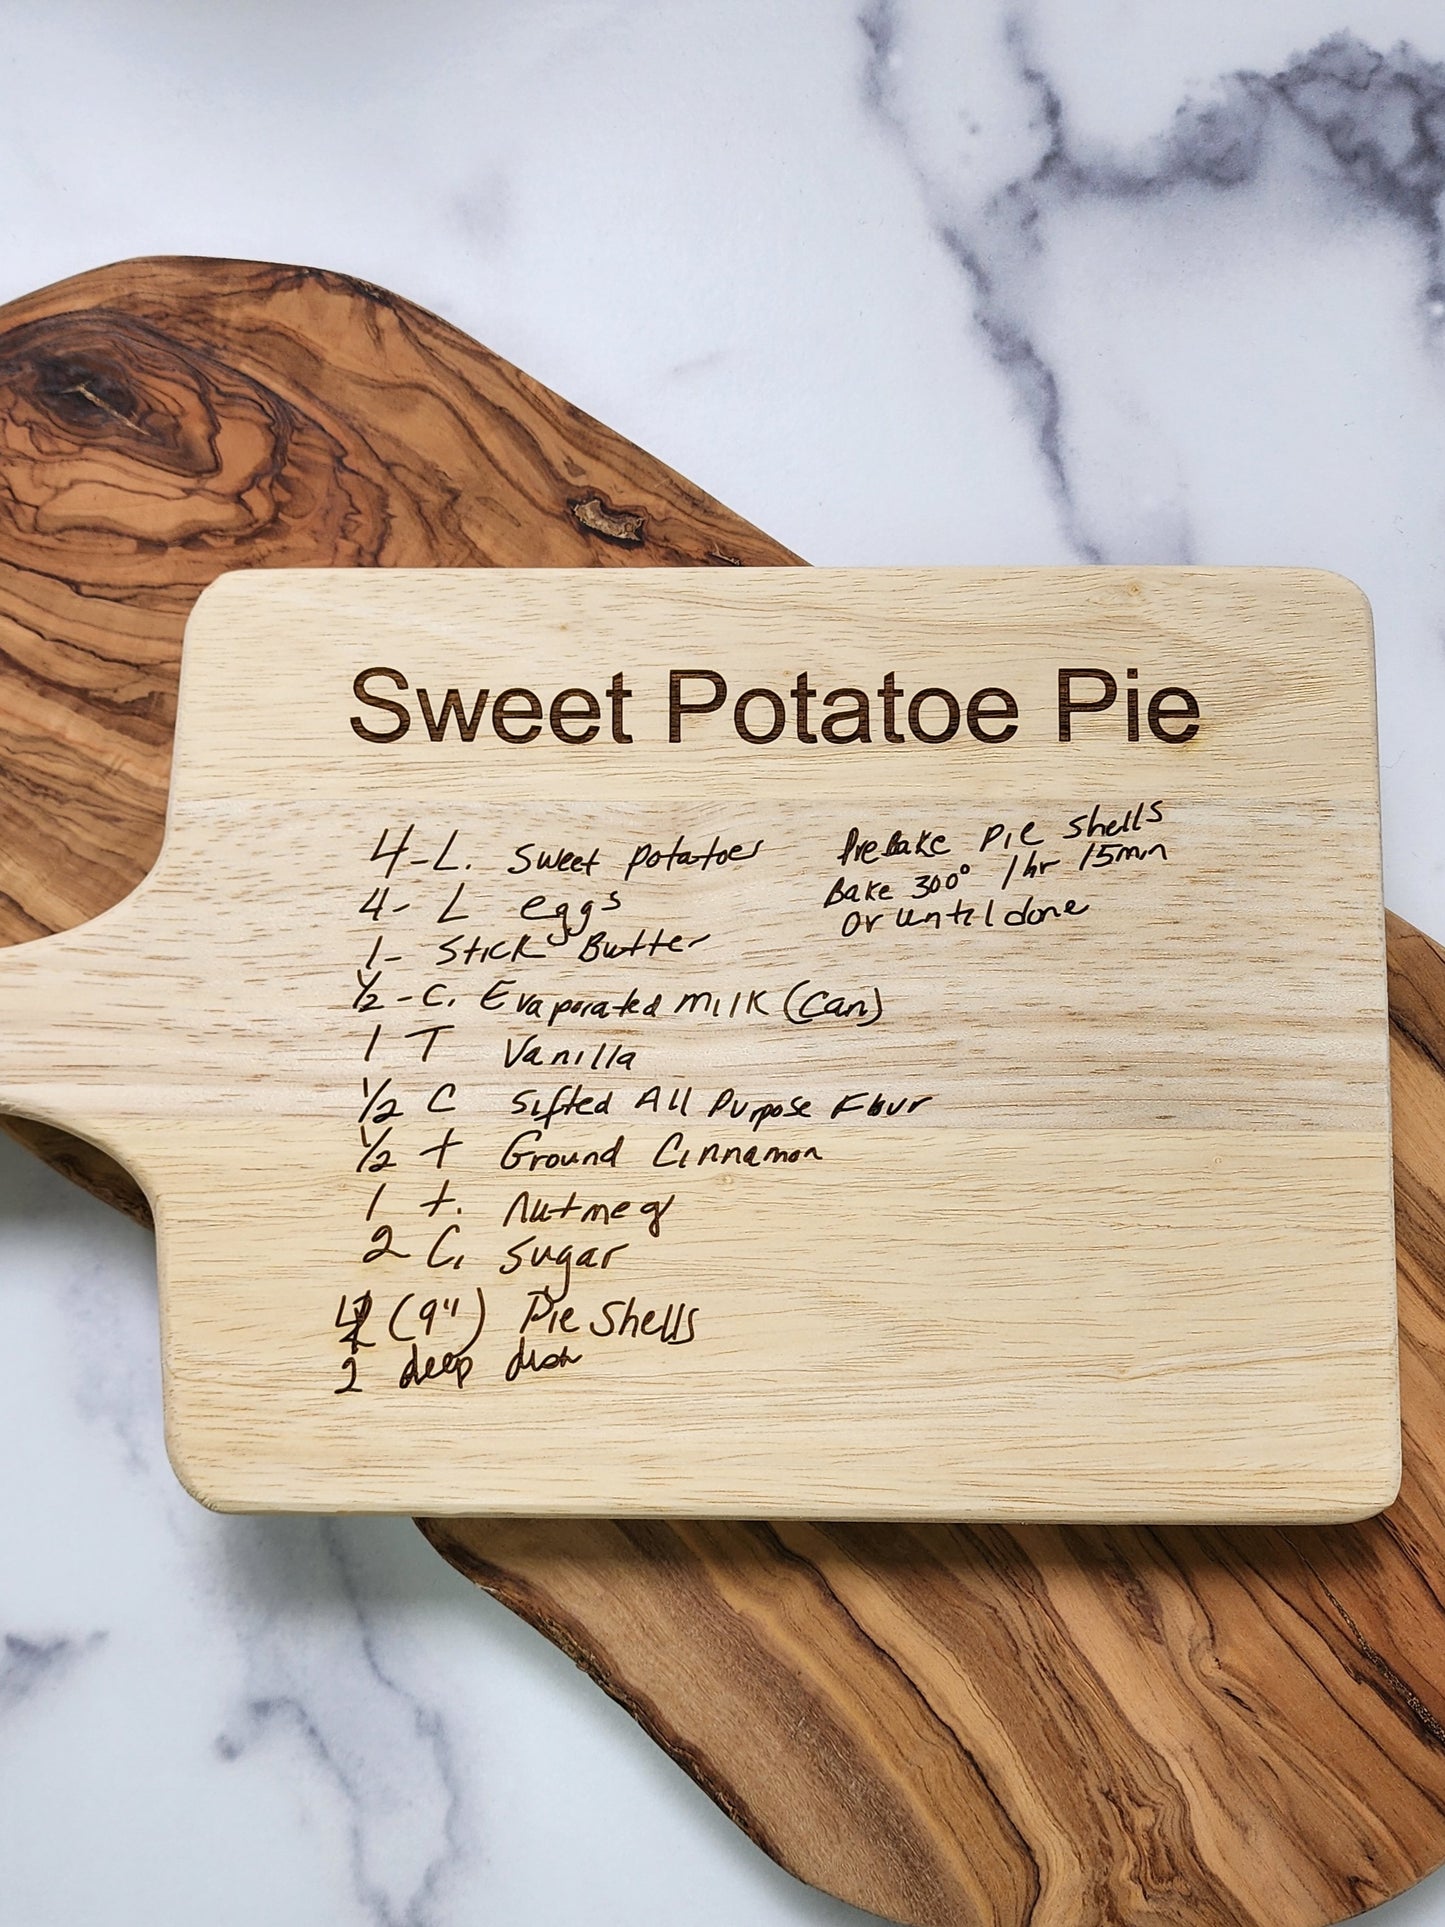 Sweet Potatoe Pie
4-L. Sweet potatoes
4- L eggs
1- Stick Butter
1/2 -C. Evaporated Milk (Can)
1 T Vanilla
1/2 C Sifted All Purpose Flour
1/2 t Ground Cinnamon
1 t. Nutmeg
2 C. Sugar
(9") Pie Shells
2 deep dish
PreBake Pie Shells
Bake 300° 1 hr 15min
or until done